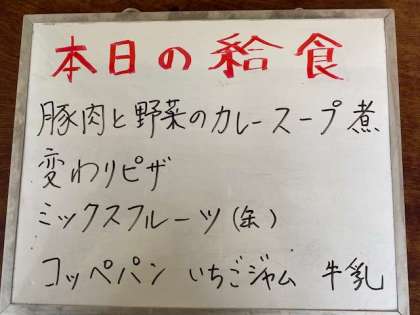 本日の給食
豚肉と野菜のカレースープ煮
変わりピザ
ミックスフルーツ(缶)
コッペパン いちごジャム 牛乳